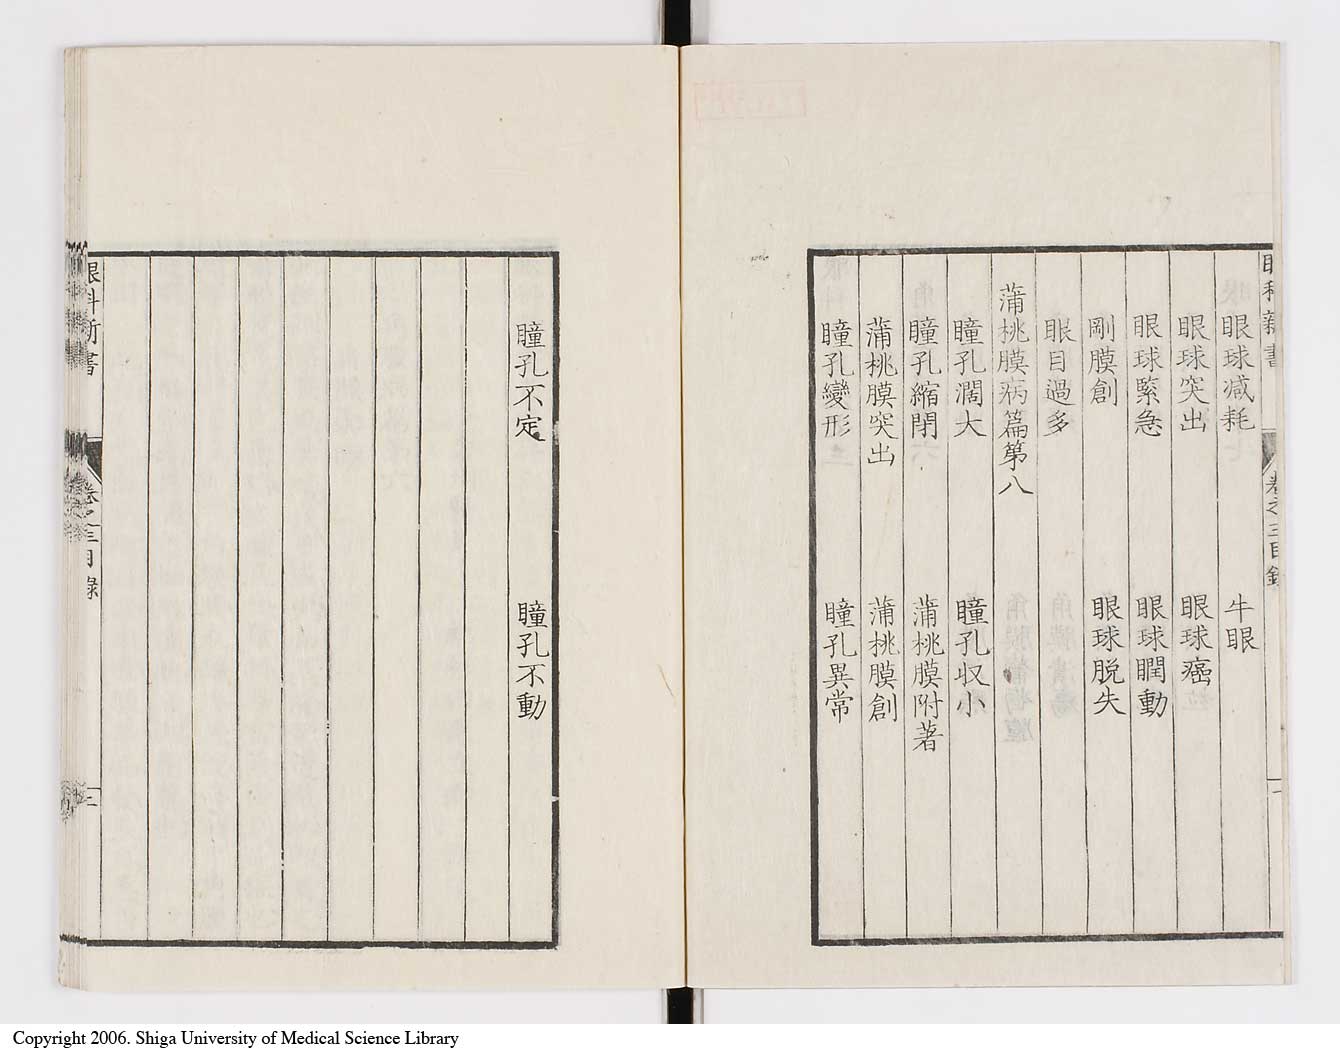 眼科新書
卷之三目錄
眼球減耗　牛眼
眼球突出　眼球癌
眼球緊急　眼球瞤動
剛膜創　眼球脱失
眼目過多
蒲桃膜病篇第八
瞳孔濶大　瞳孔収小
瞳孔縮閉　蒲桃膜附著
蒲桃膜突出　蒲桃膜創
瞳孔變形　瞳孔異常
瞳孔不定　瞳孔不動
眼科新書
卷之三目錄
三
Copyright 2006. Shiga University of Medical Science Library